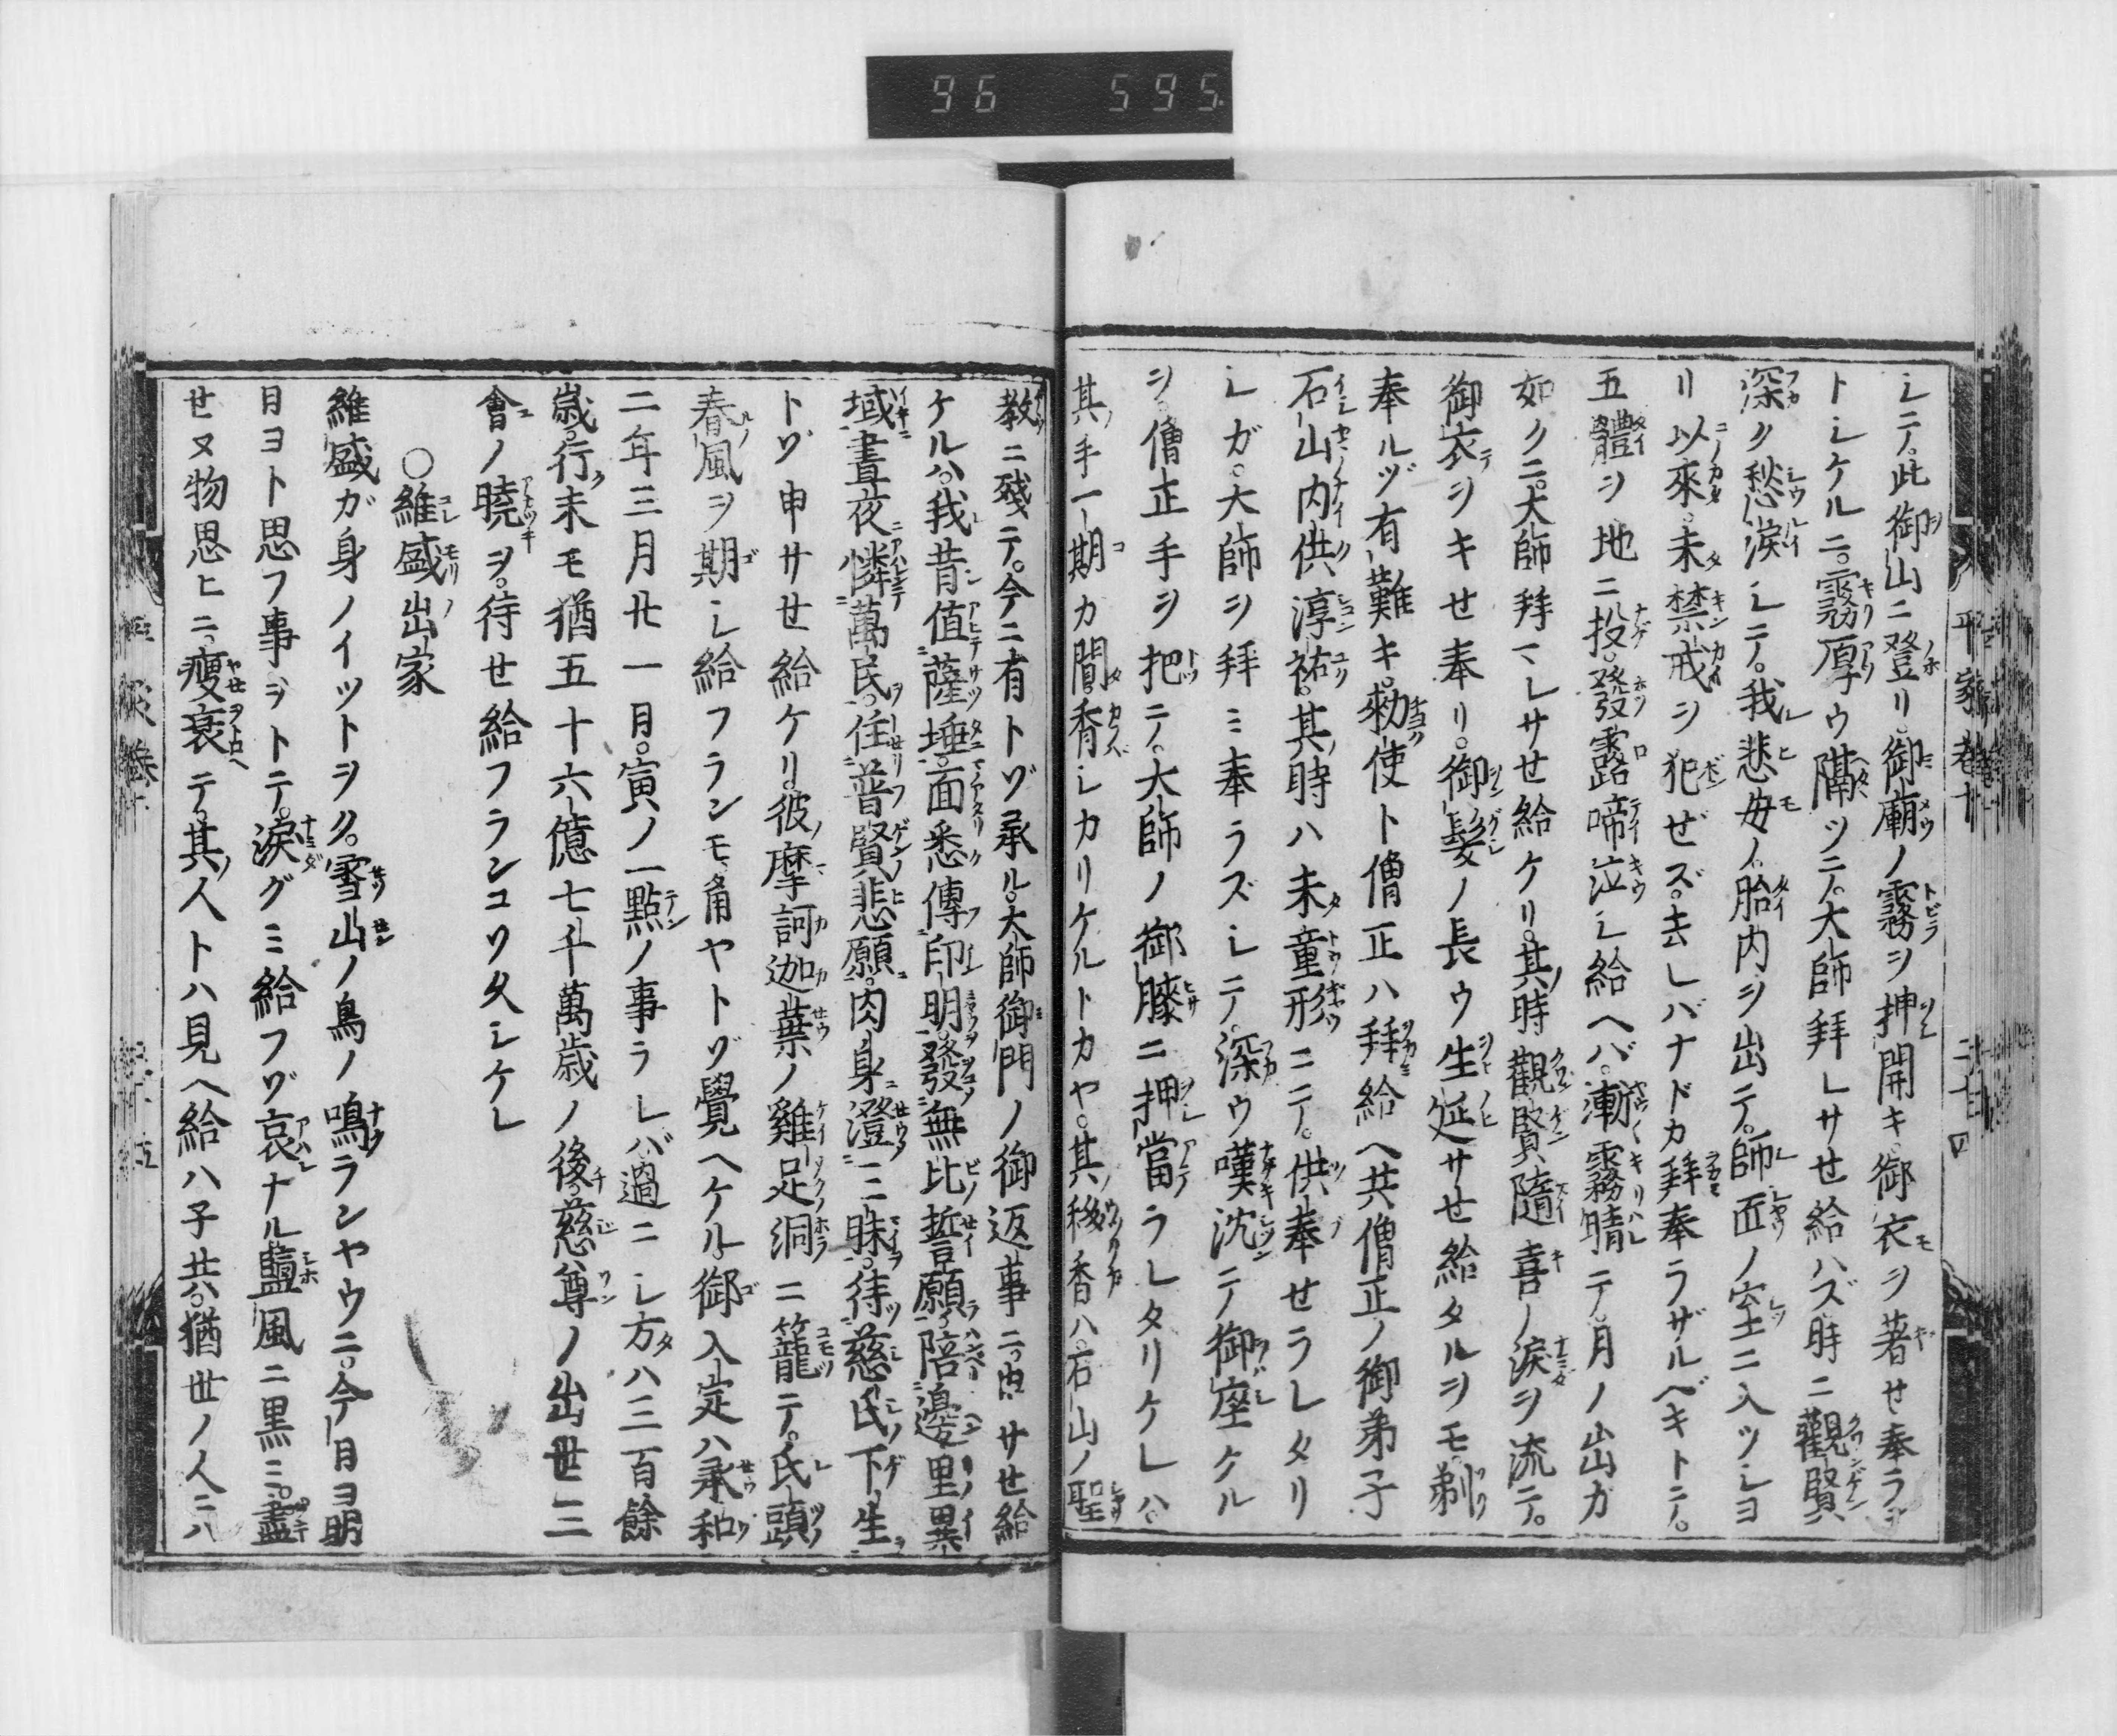 96 595
平家巻十
二十四
シテ。此御山ニ登リ。御廟ノ霧ヲ押開キ。御衣ヲ著せ奉ラヨ
トシケルニ。霧厚ウ隔ツニテ。大師拜レサせ給ハズ。時ニ觀賢
深ク愁淚シテ。我悲母ノ胎内ヲ出テ。師匠ノ室ニ入ツシヨ
リ以來。未禁戒ヲ犯ぜズ。去レバナドカ拜奉ラザルベキトテ。
五體ヲ地ニ投。發露啼泣シ給ヘバ。漸霧晴テ。月ノ出ガ
如クニ。大師拜マレサせ給ケリ。其時觀賢隨喜ノ淚ヲ流テ。
御衣ヲキせ奉リ。御髮ノ長ウ生延サせ給タルヲモ。剃
奉ルゾ有難キ。勅使ト僧正ハ拜給ヘ共僧正ノ御弟子
石山内供淳祐。其時ハ未童形ニテ。供奉せラレタリ
シガ。大師ヲ拜ミ奉ラズシテ。深ウ嘆沈テ御座ケル
ヲ。僧正手ヲ把テ。大師ノ御膝ニ押當ラレタリケレハ。
其手一期カ間。香シカリケルトカヤ。其移香ハ。石山ノ聖
教ニ殘テ。今ニ有トゾ承ル。大師御門ノ御返事ニ。申サせ給
ケルハ。我昔值薩埵。面悉傳印明。發無比誓願。陪邊里異
域。晝夜憐萬民。住普賢悲願。肉身澄三昧。待慈氏下生
トゾ申サせ給ケリ。彼摩訶迦葉ノ雞足洞ニ籠テ。氏頭
春風ヲ期シ給フランモ。角ヤトゾ覺ヘケル。御入定ハ承和
二年三月廿一日。寅ノ一點ノ事ラレバ。過ニシ方ハ三百餘
歲。行末モ猶五十六億七千萬歲ノ後。慈尊ノ出世三
會ノ曉ヲ。待せ給フランコソ久シケレ
○維盛出家
維盛ガ身ノイツトヲク。雪山ノ鳥ノ鳴ランヤウニ。今日ヨ明
日ヨト思フ事ヲトテ。淚グミ給フゾ哀ナル。鹽風ニ黒ミ。盡
せヌ物思ヒニ。瘦衰テ。其人トハ見ヘ給ハ子共。猶世ノ人ニハ